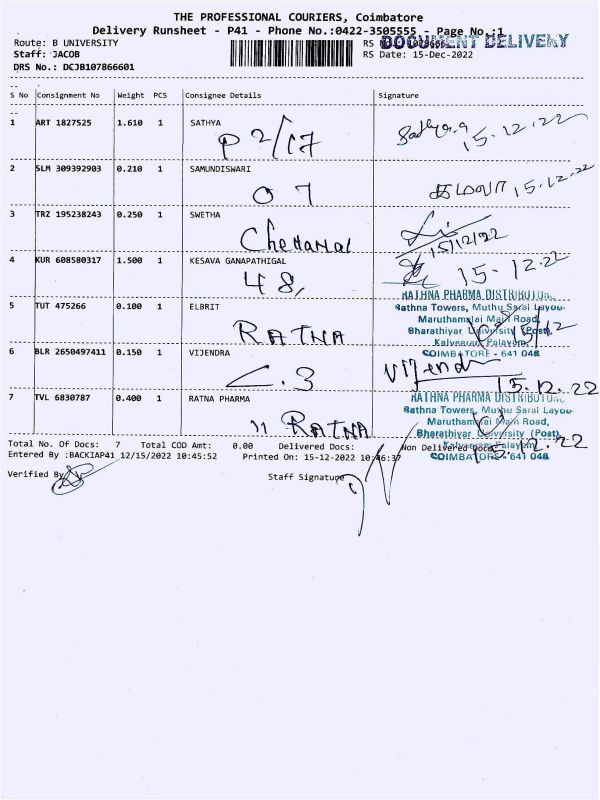 THE PROFESSIONAL COURIERS, Coimbatore
Delivery Runsheet - P41 - Phone No.:0422-3505555 - Page No.:1
Route: B UNIVERSITY
DOCUMENT DELIVERY
Staff: JACOB
RS Date: 15-Dec-2022
DRS No.: DCJB107866601
S No Consignment No Weight PCS Consignee Details Signature
1 ART 1827525 1.610 1 SATHYA
P 2/17
Sathya.g 15.12.22
2 SLM 309392903 0.210 1 SAMUNDISWARI
O 7
15.12.22
3 TRZ 195238243 0.250 1 SWETHA
15/12/22
4 KUR 608580317 1.500 1 KESAVA GANAPATHIGAL
48,
15.12.22
RATHNA PHARMA DISTRIBUTORS
5 TUT 475266 0.100 1 ELBRIT
Rathna Towers, Muthu Saral Layou
Maruthamalai Main Road,
RATNA
Bharathiyar University (Post)
Kalveeram Palayam,
15/12
6 BLR 2650497411 0.150 1 VIJENDRA
COIMBATORE - 641 046
C.3
Vijendra
15.12.22
7 TVL 6830787 0.400 1 RATNA PHARMA
RATHNA PHARMA DISTRIBUTORS
Rathna Towers, Muthu Saral Layou
Maruthamalai Main Road,
11 RATNA
Bharathiyar University (Post)
Kalveeram Palayam,
COIMBATORE - 641 046
15.12.22
Total No. Of Docs: 7 Total COD Amt: 0.00 Delivered Docs: Non Delivered Docs:
Entered By :BACKIAP41 12/15/2022 10:45:52 Printed On: 15-12-2022 10:46:37
Verified By
Staff Signature